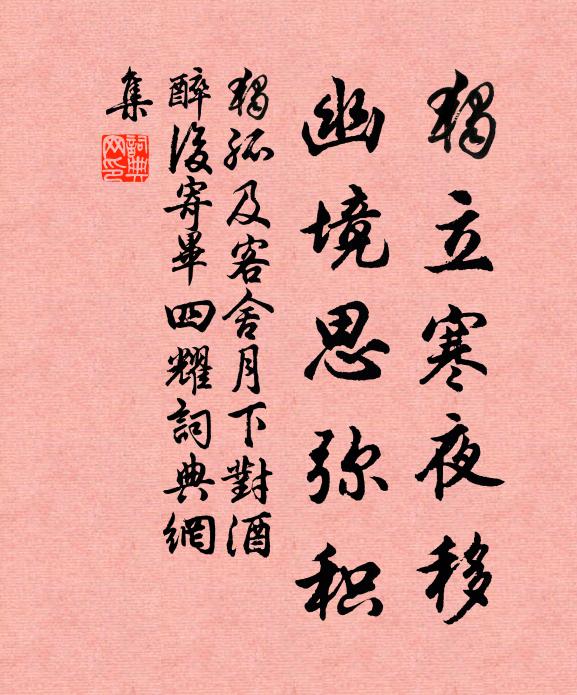 獨立寒夜移
幽境思弥积
獨孤及客舍月下對酒
醉後寄畢四耀詞典網
集
詞典網印